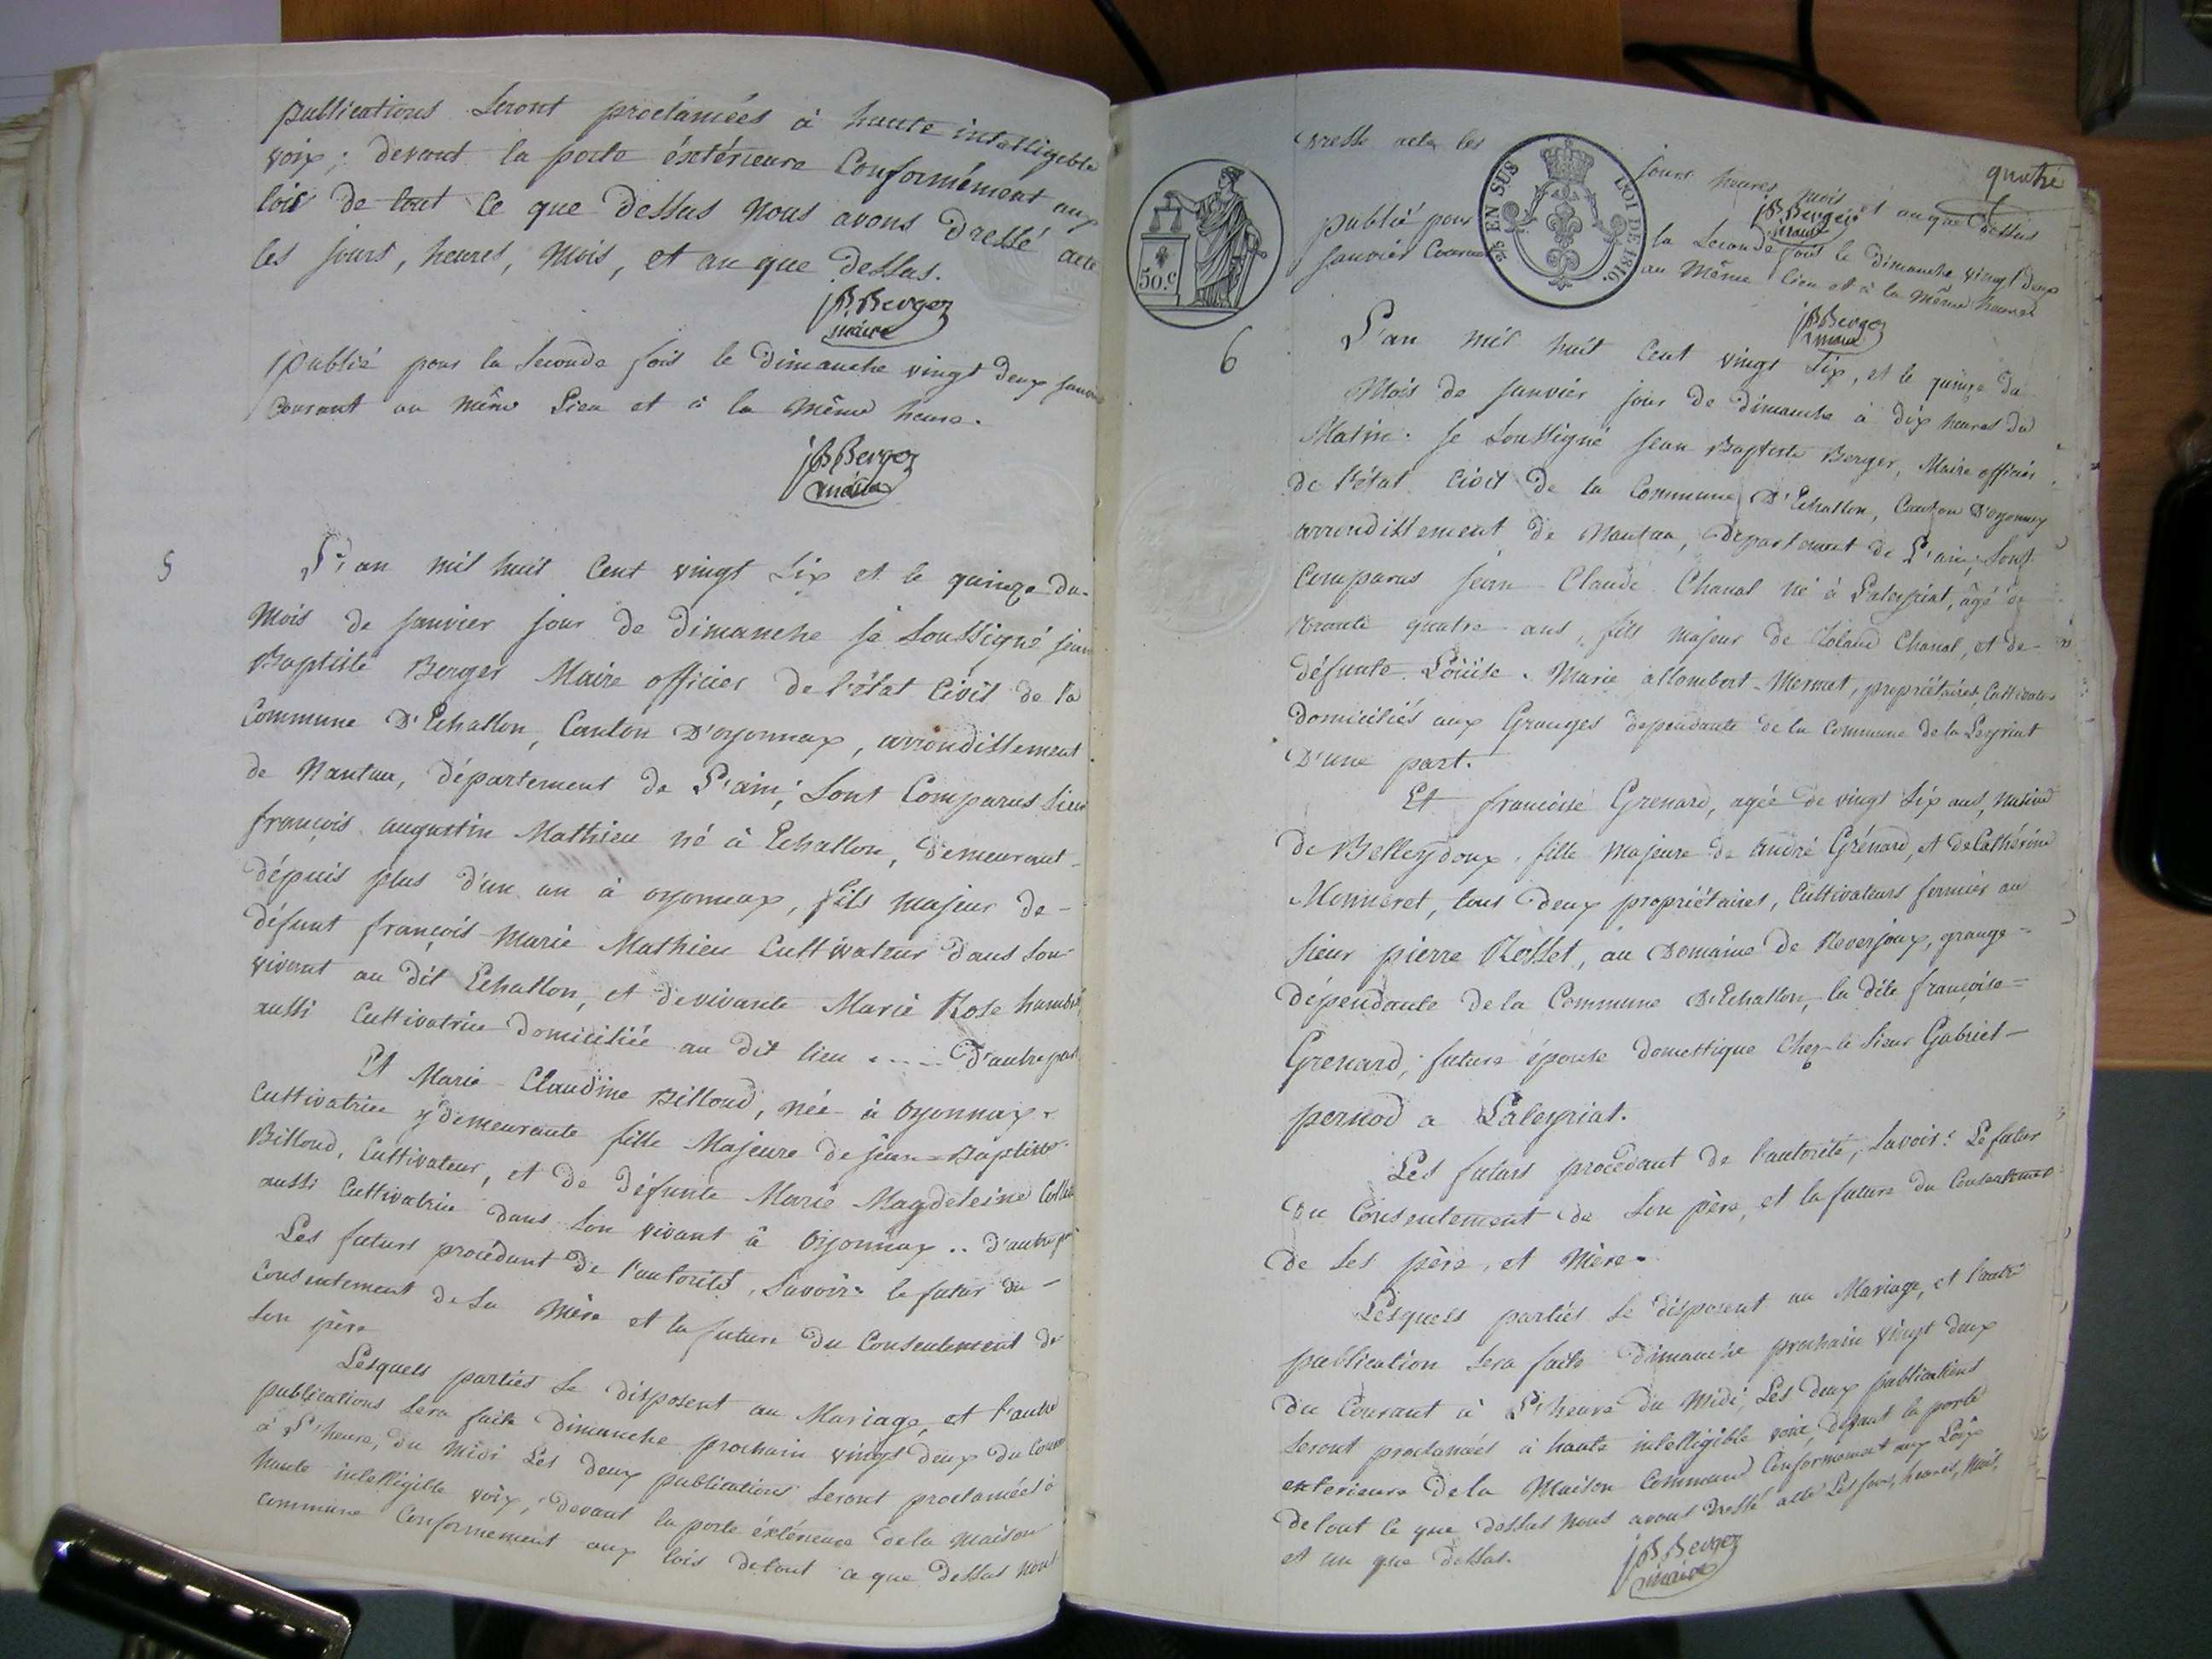 publications seront proclamées à haute intelligible
voix; devant la porte éxtérieure Conformément aux
lois de tout ce que dessus nous avons dressé acte
les jours, heures, mois, et an que dessus.
JB Berger
maire
publié pour la seconde fois le dimanche vingt deux janvier
Courant au même Lieu et à la même heure.
JB Berger
maire
5
L'an mil huit Cent vingt six et le quinze du
mois de janvier jour de dimanche je soussigné jean
Baptiste Berger Maire officier de l'état Civil de la
Commune D'Echallon, Canton D'oyonnax, arrondissement
de Nantua, département de L'ain; sont Comparus sieur
françois augustin Mathieu né à Echallon, demeurant
dépuis plus d'un an à oyonnax, fils majeur de
défunt françois Marie Mathieu Cultivateur dans son
vivant au dit Echallon, et de vivante Marie Rose
aussi Cultivatrice domiciliée au dit lieu .... D'autre part
Et Marie Claudine Billoud, née à Oyonnax
Cultivatrice y demeurante fille Majeure de jean=Baptiste
Billoud, Cultivateur, et de défunte Marie Magdeleine
aussi Cultivatrice dans son vivant à Oyonnax .. d'autre part
Les futurs procédant de l'autorité, Savoir: le futur du
Consentement de sa mère et la future du Consentement de
son père
Lesquels parties se disposent au Mariage, et l'autre
publications sera faite dimanche prochain vingt deux du Courant
à L'heure, du midi Les deux publications seront proclamées à
haute intelligible voix, devant la porte éxtérieure de la maison
commune Conformement aux lois de tout ce que dessus nous
quatre
dressé acte les jours heures mois et an que dessus
JB Berger
maire
publié pour la seconde fois le dimanche vingt deux
janvier Courant au même lieu et à la même heure
JB Berger
maire
EN SUS LOI DE 1816.
50.c
6
L'an mil huit Cent vingt six, et le quinze du
Mois de janvier jour de dimanche à dix heures du
Matin. je soussigné jean Baptiste Berger, Maire officier
de l'état Civil de la Commune D'Echallon, Canton D'oyonnax
arrondissement de Nantua, département de L'ain; sont
Comparus jean Claude Chanal né à Laleyriat, âgé de
trente quatre ans, fils majeur de Roland Chanal, et de
défunte Loüise Marie allombert-Mermet, propriétaires, Cultivateurs
domiciliés aux Granges dependante de la Commune de la Leyriat
D'une part.
Et francoise Grenard, agée de vingt six ans, native
de Belleydoux, fille majeure de André Grénard, et de Cathérine
Monneret, tous deux propriétaires, Cultivateurs fermiers au
sieur pierre Rosset, au Domaine de Reverjoux, grange
dépendante de la Commune D'Echallon, la dite françoise=
Grenard; future épouse domestique Chez le sieur Gabriel
pernod a Laleyriat.
Les futurs procédant de l'autorité, Savoir: Le futur
du Consentement de son père, et la future du Consentement
de ses père, et mère.
Lesquels parties se disposent au Mariage, et l'autre
publication sera faite dimanche prochain vingt deux
du Courant à L'heure du midi, Les deux publications
seront proclamées à haute intelligible voix, devant la porte
exterieure de la Maison Commune Conformement aux Loix
de tout ce que dessus nous avons dressé acte Les jour, heures, mois,
et an que dessus.
JB Berger
maire